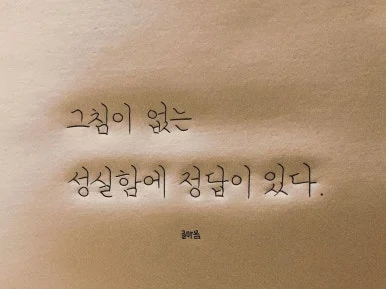 그침이 없는
성실함에 정답이 있다.